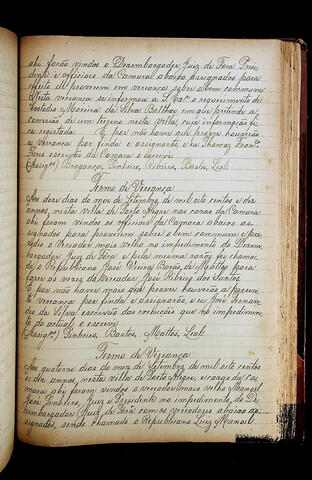 ahi forão vindos o Dezembargador Juiz de Fora Prezi
dente e officiaes da Camara abaixo assignados para
effeito de proverem em vereança sobre o bem commum
e nesta vereança se informou a S. Exª. o requerimento de
Custodio Moreira da Silva Balthar em que pretende a
concessão de um terreno nesta villa, cuja informação fi
ca registada. E por não haver que prover houverão
a vereança por finda e assignarão e eu Thomaz Fran.co
Pires escrivão da Camara o escrevi.
(Assig.os) Bragança, Pinheiro, Ribeiro, Bastos, Leal.
Termo de Vereança
Aos dois dias do mez de Setembro de mil oito centos e dez
annos, nesta villa de Porto Alegre nas cazas da Camara
ahi forão vindos os officiaes da Camara abaixo as-
signados para proverem sobre o bem commum e pre
zidio o Vereador mais velho no impedimento do Dezem
bargador Juiz de Fora e pela mesma razão foi chama
do o Republicano José Vieira de Mattos para
supprir as vezes do Vereador José Ribeiro dos Santos.
E por não haver mais que prover houverão a prezen
te vereança por finda e assignarão, e eu José Fernan
des da Silva escrivão das execuções que no impedimen
to do actual o escrevi.
(Assig.os) Pinheiro, Bastos, Mattos, Leal.
Termo de Vereança
Aos quatorze dias do mez de Setembro de mil oito centos
e dez annos, nesta villa de Porto Alegre, e cazas da Ca
mara ahi forão vindos o vereador mais velho Manoel
José Pinheiro, Juiz e Prezidente no impedimento do De
zembargador Juiz de Fora com os vereadores abaixo as-
signados, sendo chamado o Republicano Luiz Manoel